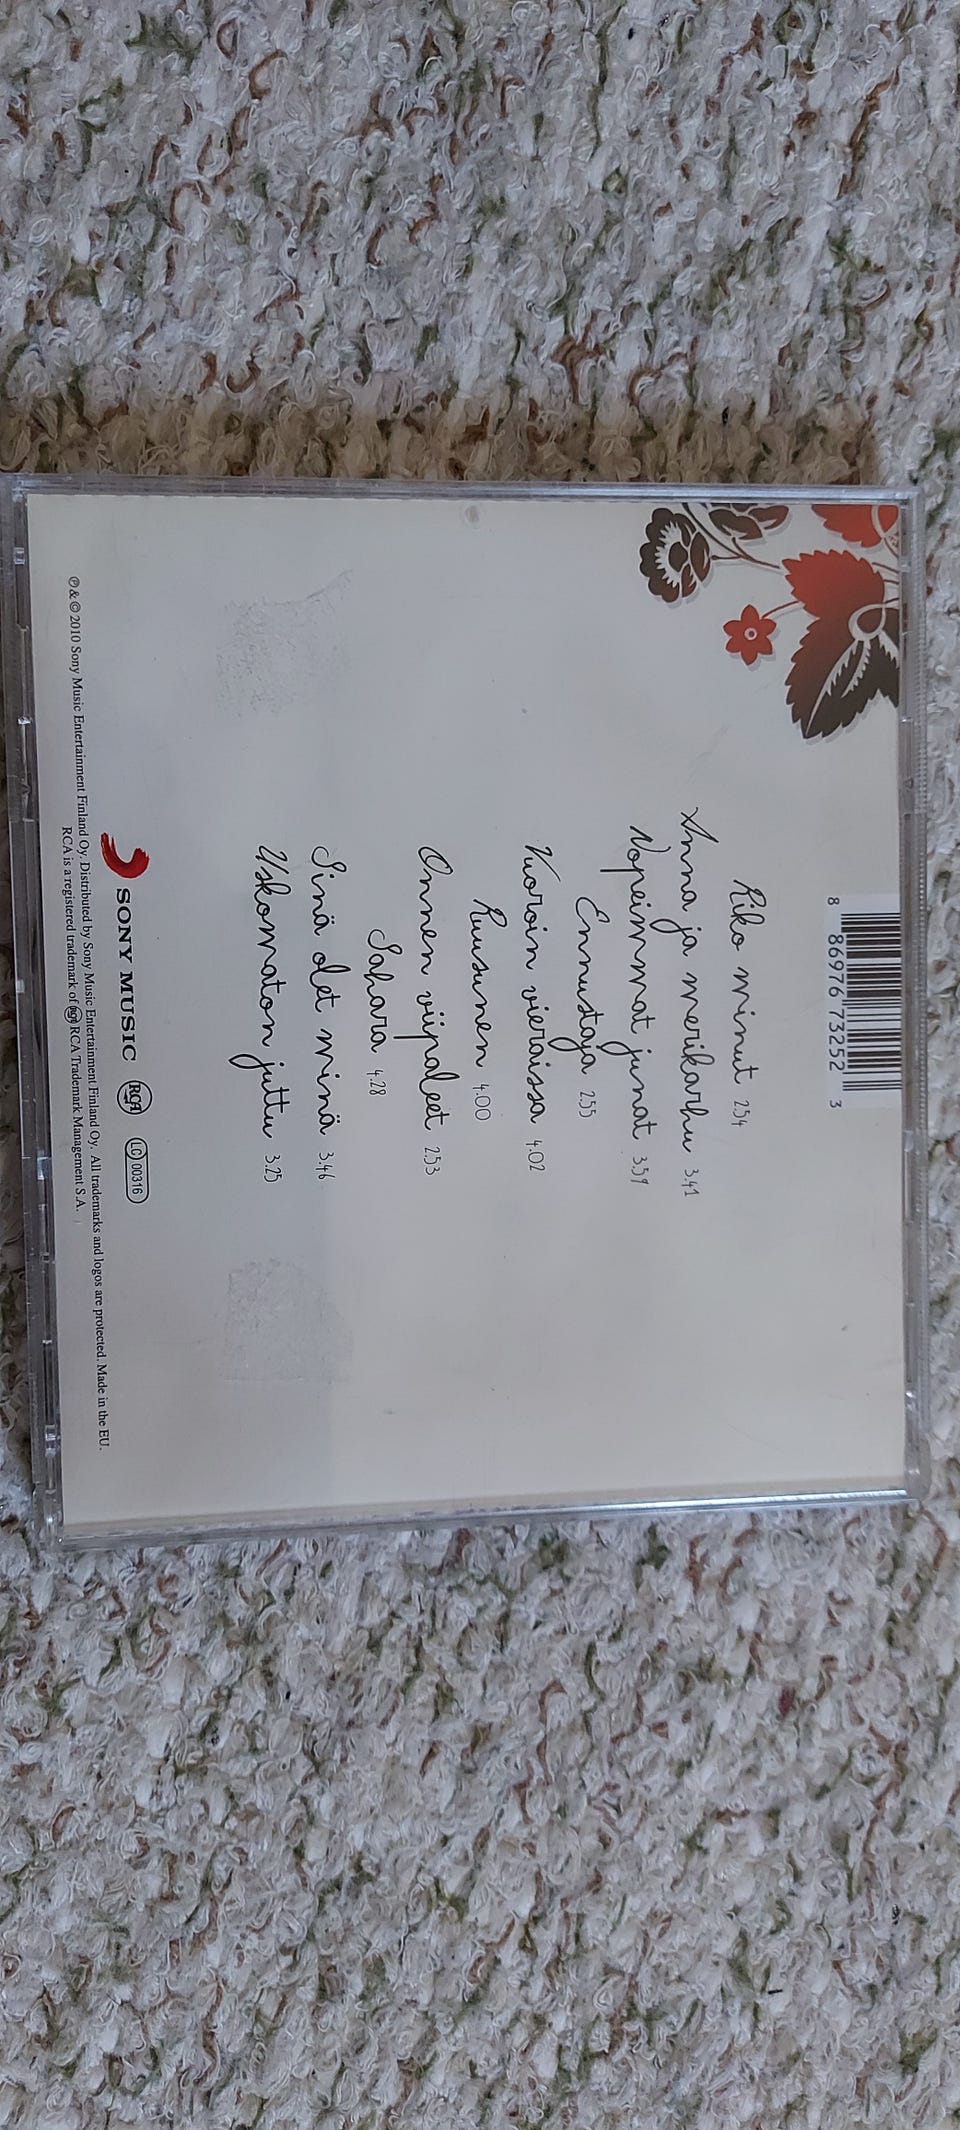 8 86976 73252 3
Riko minut 2.54
Anna ja merikarhu 3.41
Nopeimmat junat 3.59
Ennustaja 2.55
Vuoroin vieraissa 4.02
Ruusunen 4.00
Onnen viipaleet 2.53
Sahara 4.28
Sinä olet minä 3.46
Uskomaton juttu 3.25
SONY MUSIC RCA LC 00316
℗ & © 2010 Sony Music Entertainment Finland Oy. Distributed by Sony Music Entertainment Finland Oy. All trademarks and logos are protected. Made in the EU.
RCA is a registered trademark of RCA RCA Trademark Management S.A.